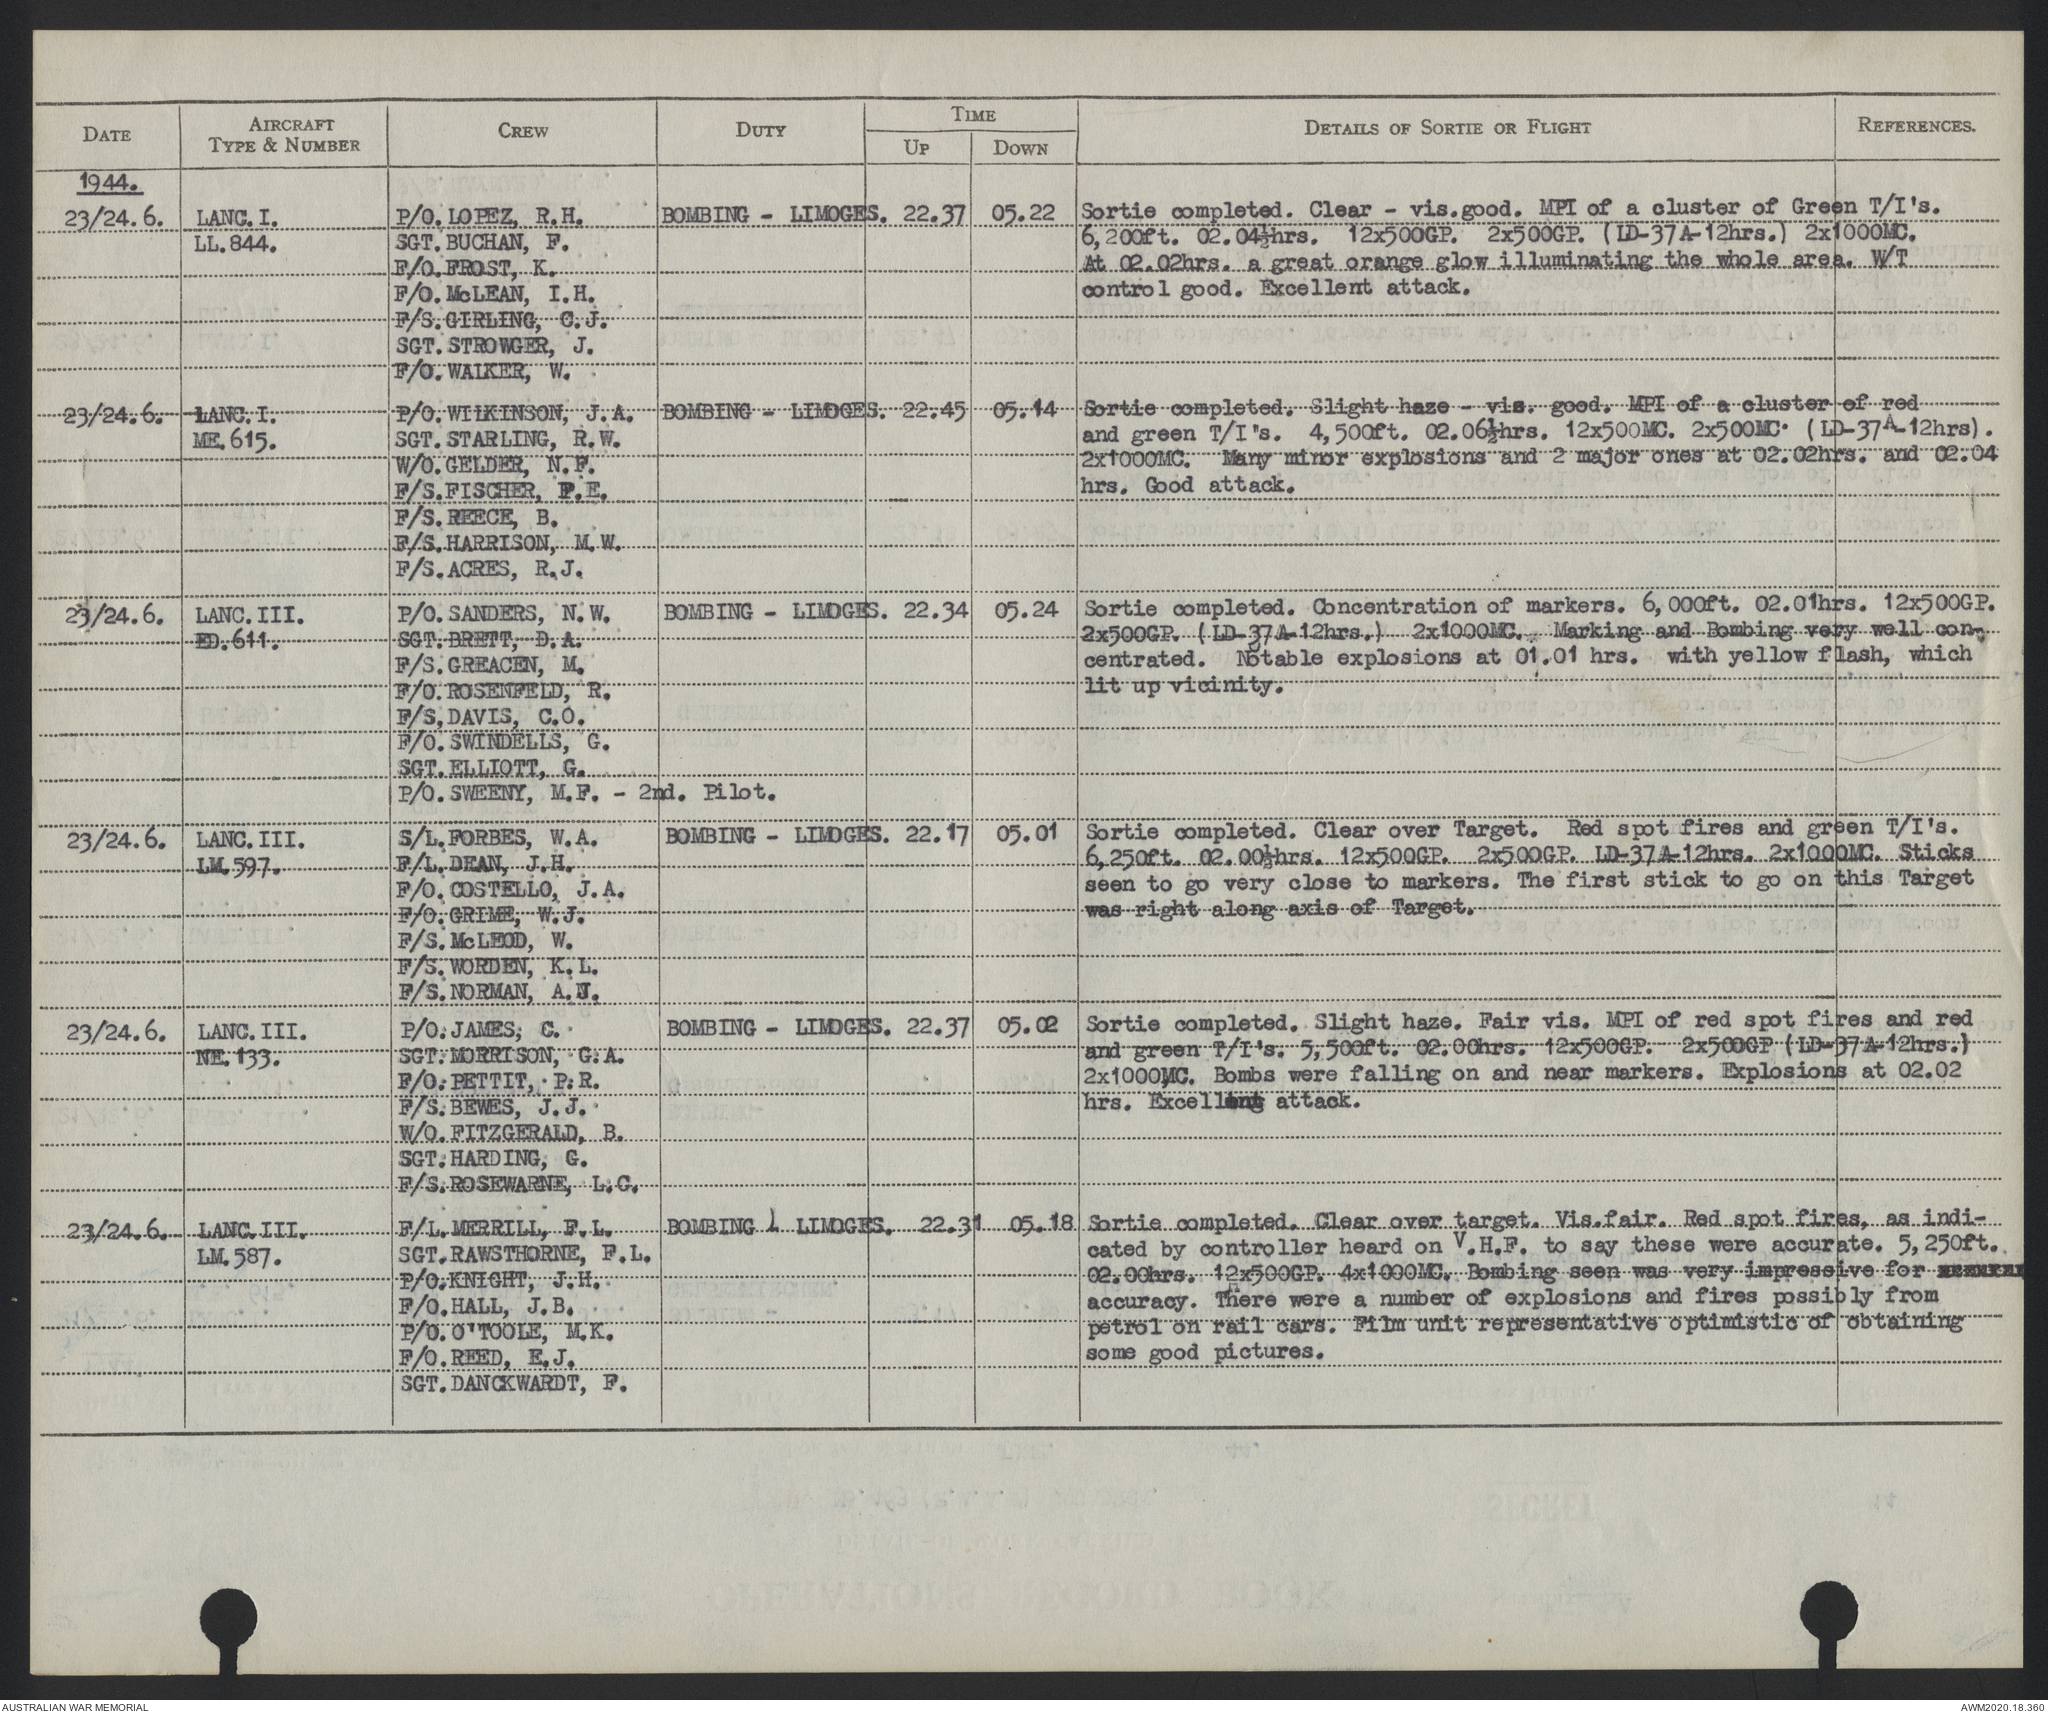 DATE AIRCRAFT TYPE & NUMBER CREW DUTY TIME UP DOWN DETAILS OF SORTIE OR FLIGHT REFERENCES.
1944.
23/24.6. LANC.I. P/O.LOPEZ, R.H. BOMBING - LIMOGES. 22.37 05.22 Sortie completed. Clear - vis.good. MPI of a cluster of Green T/I's.
LL.844. SGT.BUCHAN, F. 6,200ft. 02.04½hrs. 12x500GP. 2x500GP. (LD-37A-12hrs.) 2x1000MC.
F/O.FROST, K. At 02.02hrs. a great orange glow illuminating the whole area. W/T
F/O.McLEAN, I.H. control good. Excellent attack.
F/S.GIRLING, C.J.
SGT.STROWGER, J.
F/O.WALKER, W.
23/24.6. LANC.I. P/O.WILKINSON, J.A. BOMBING - LIMOGES. 22.45 05.14 Sortie completed. Slight haze - vis. good. MPI of a cluster of red
ME.615. SGT.STARLING, R.W. and green T/I's. 4,500ft. 02.06½hrs. 12x500MC. 2x500MC. (LD-37A-12hrs).
W/O.GELDER, N.F. 2x1000MC. Many minor explosions and 2 major ones at 02.02hrs. and 02.04
F/S.FISCHER, P.E. hrs. Good attack.
F/S.REECE, B.
F/S.HARRISON, M.W.
F/S.ACRES, R.J.
23/24.6. LANC.III. P/O.SANDERS, N.W. BOMBING - LIMOGES. 22.34 05.24 Sortie completed. Concentration of markers. 6,000ft. 02.01hrs. 12x500GP.
ED.611. SGT.BRETT, D.A. 2x500GP. (LD-37A-12hrs.) 2x1000MC. Marking and Bombing very well con-
F/S.GREACEN, M. centrated. Notable explosions at 01.01 hrs. with yellow flash, which
F/O.ROSENFELD, R. lit up vicinity.
F/S,DAVIS, C.O.
F/O.SWINDELLS, G.
SGT.ELLIOTT, G.
P/O.SWEENY, M.F. - 2nd. Pilot.
23/24.6. LANC.III. S/L.FORBES, W.A. BOMBING - LIMOGES. 22.17 05.01 Sortie completed. Clear over Target. Red spot fires and green T/I's.
LM.597. F/L.DEAN, J.H. 6,250ft. 02.00½hrs. 12x500GP. 2x500GP. LD-37A-12hrs. 2x1000MC. Sticks
F/O.COSTELLO, J.A. seen to go very close to markers. The first stick to go on this Target
F/O.GRIME, W.J. was right along axis of Target.
F/S.McLEOD, W.
F/S.WORDEN, K.L.
F/S.NORMAN, A.J.
23/24.6. LANC.III. P/O.JAMES, C. BOMBING - LIMOGES. 22.37 05.02 Sortie completed. Slight haze. Fair vis. MPI of red spot fires and red
NE.133. SGT.MORRISON, G.A. and green T/I's. 5,500ft. 02.00hrs. 12x500GP. 2x500GP (LD-37A-12hrs.)
F/O.PETTIT, P.R. 2x1000MC. Bombs were falling on and near markers. Explosions at 02.02
F/S.BEWES, J.J. hrs. Excellent attack.
W/O.FITZGERALD, B.
SGT.HARDING, G.
F/S.ROSEWARNE, L.C.
23/24.6. LANC.III. F/L.MERRILL, F.L. BOMBING - LIMOGES. 22.31 05.18 Sortie completed. Clear over target. Vis.fair. Red spot fires, as indi-
LM.587. SGT.RAWSTHORNE, F.L. cated by controller heard on V.H.F. to say these were accurate. 5,250ft.
P/O.KNIGHT, J.H. 02.00hrs. 12x500GP. 4x1000MC. Bombing seen was very impressive for
F/O.HALL, J.B. accuracy. There were a number of explosions and fires possibly from
P/O.O'TOOLE, M.K. petrol on rail cars. Film unit representative optimistic of obtaining
F/O.REED, E.J. some good pictures.
SGT.DANCKWARDT, F.
AUSTRALIAN WAR MEMORIAL AWM2020.18.360